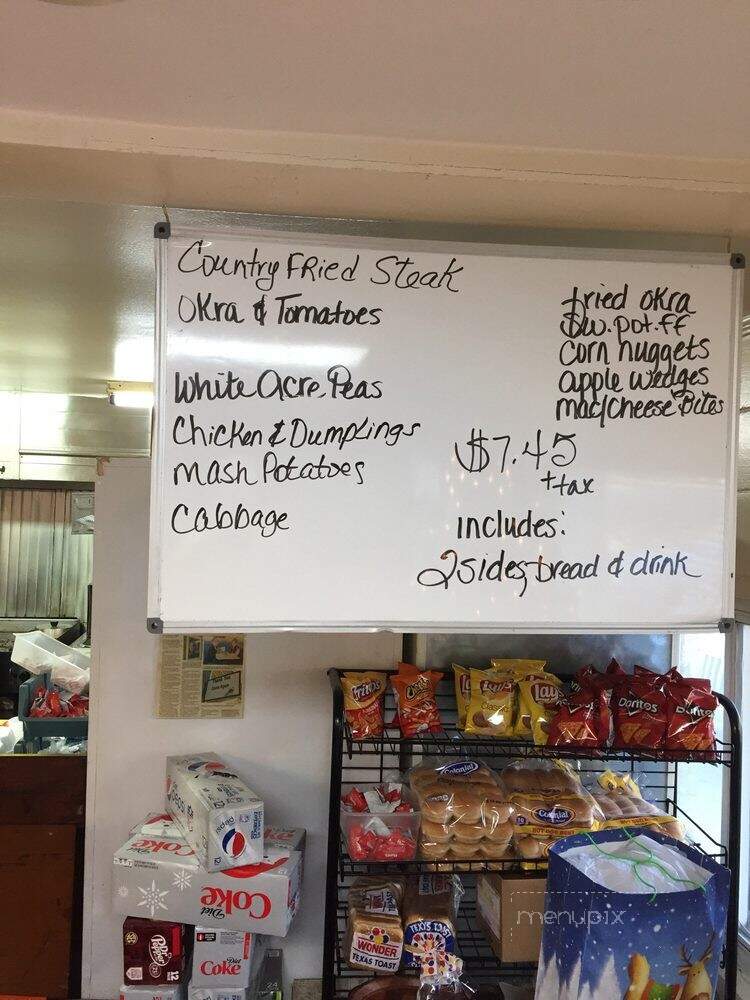 Country FRied Steak
Okra & Tomatoes
White Acre Peas
Chicken & Dumplings
Mash Potatoes
Cabbage
fried okra
Sw. pot. ff
corn nuggets
apple wedges
mac/cheese Bites
$7.45
+tax
includes:
2 sides, bread & drink
Fritos
Lay's
Lay's
Classic
Doritos
Colonial
Colonial
HOT DOG BUNS
pepsi
Coke
Diet
Coke
Dr Pepper
12
Diet
Coke
24
WONDER
TEXAS TOAST
TEXAS TOAST
menupix